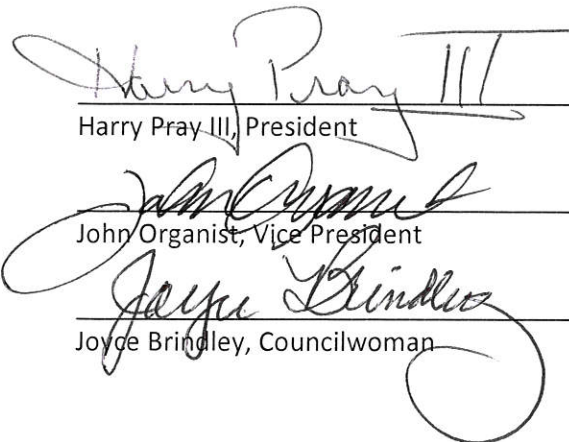 Harry Pray III
Harry Pray III, President
John Organist
John Organist, Vice President
Joyce Brindley
Joyce Brindley, Councilwoman